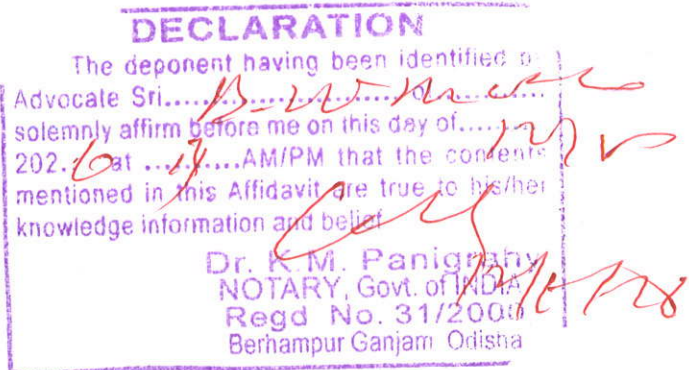 DECLARATION
The deponent having been identified
Advocate Sri..................................
solemnly affirm before me on this day of.........
202. at ..........AM/PM that the contents
mentioned in this Affidavit are true to his/her
knowledge information and belief
Dr. K.M. Panigrahy
NOTARY, Govt. of INDIA
Regd No. 31/2000
Berhampur Ganjam Odisha